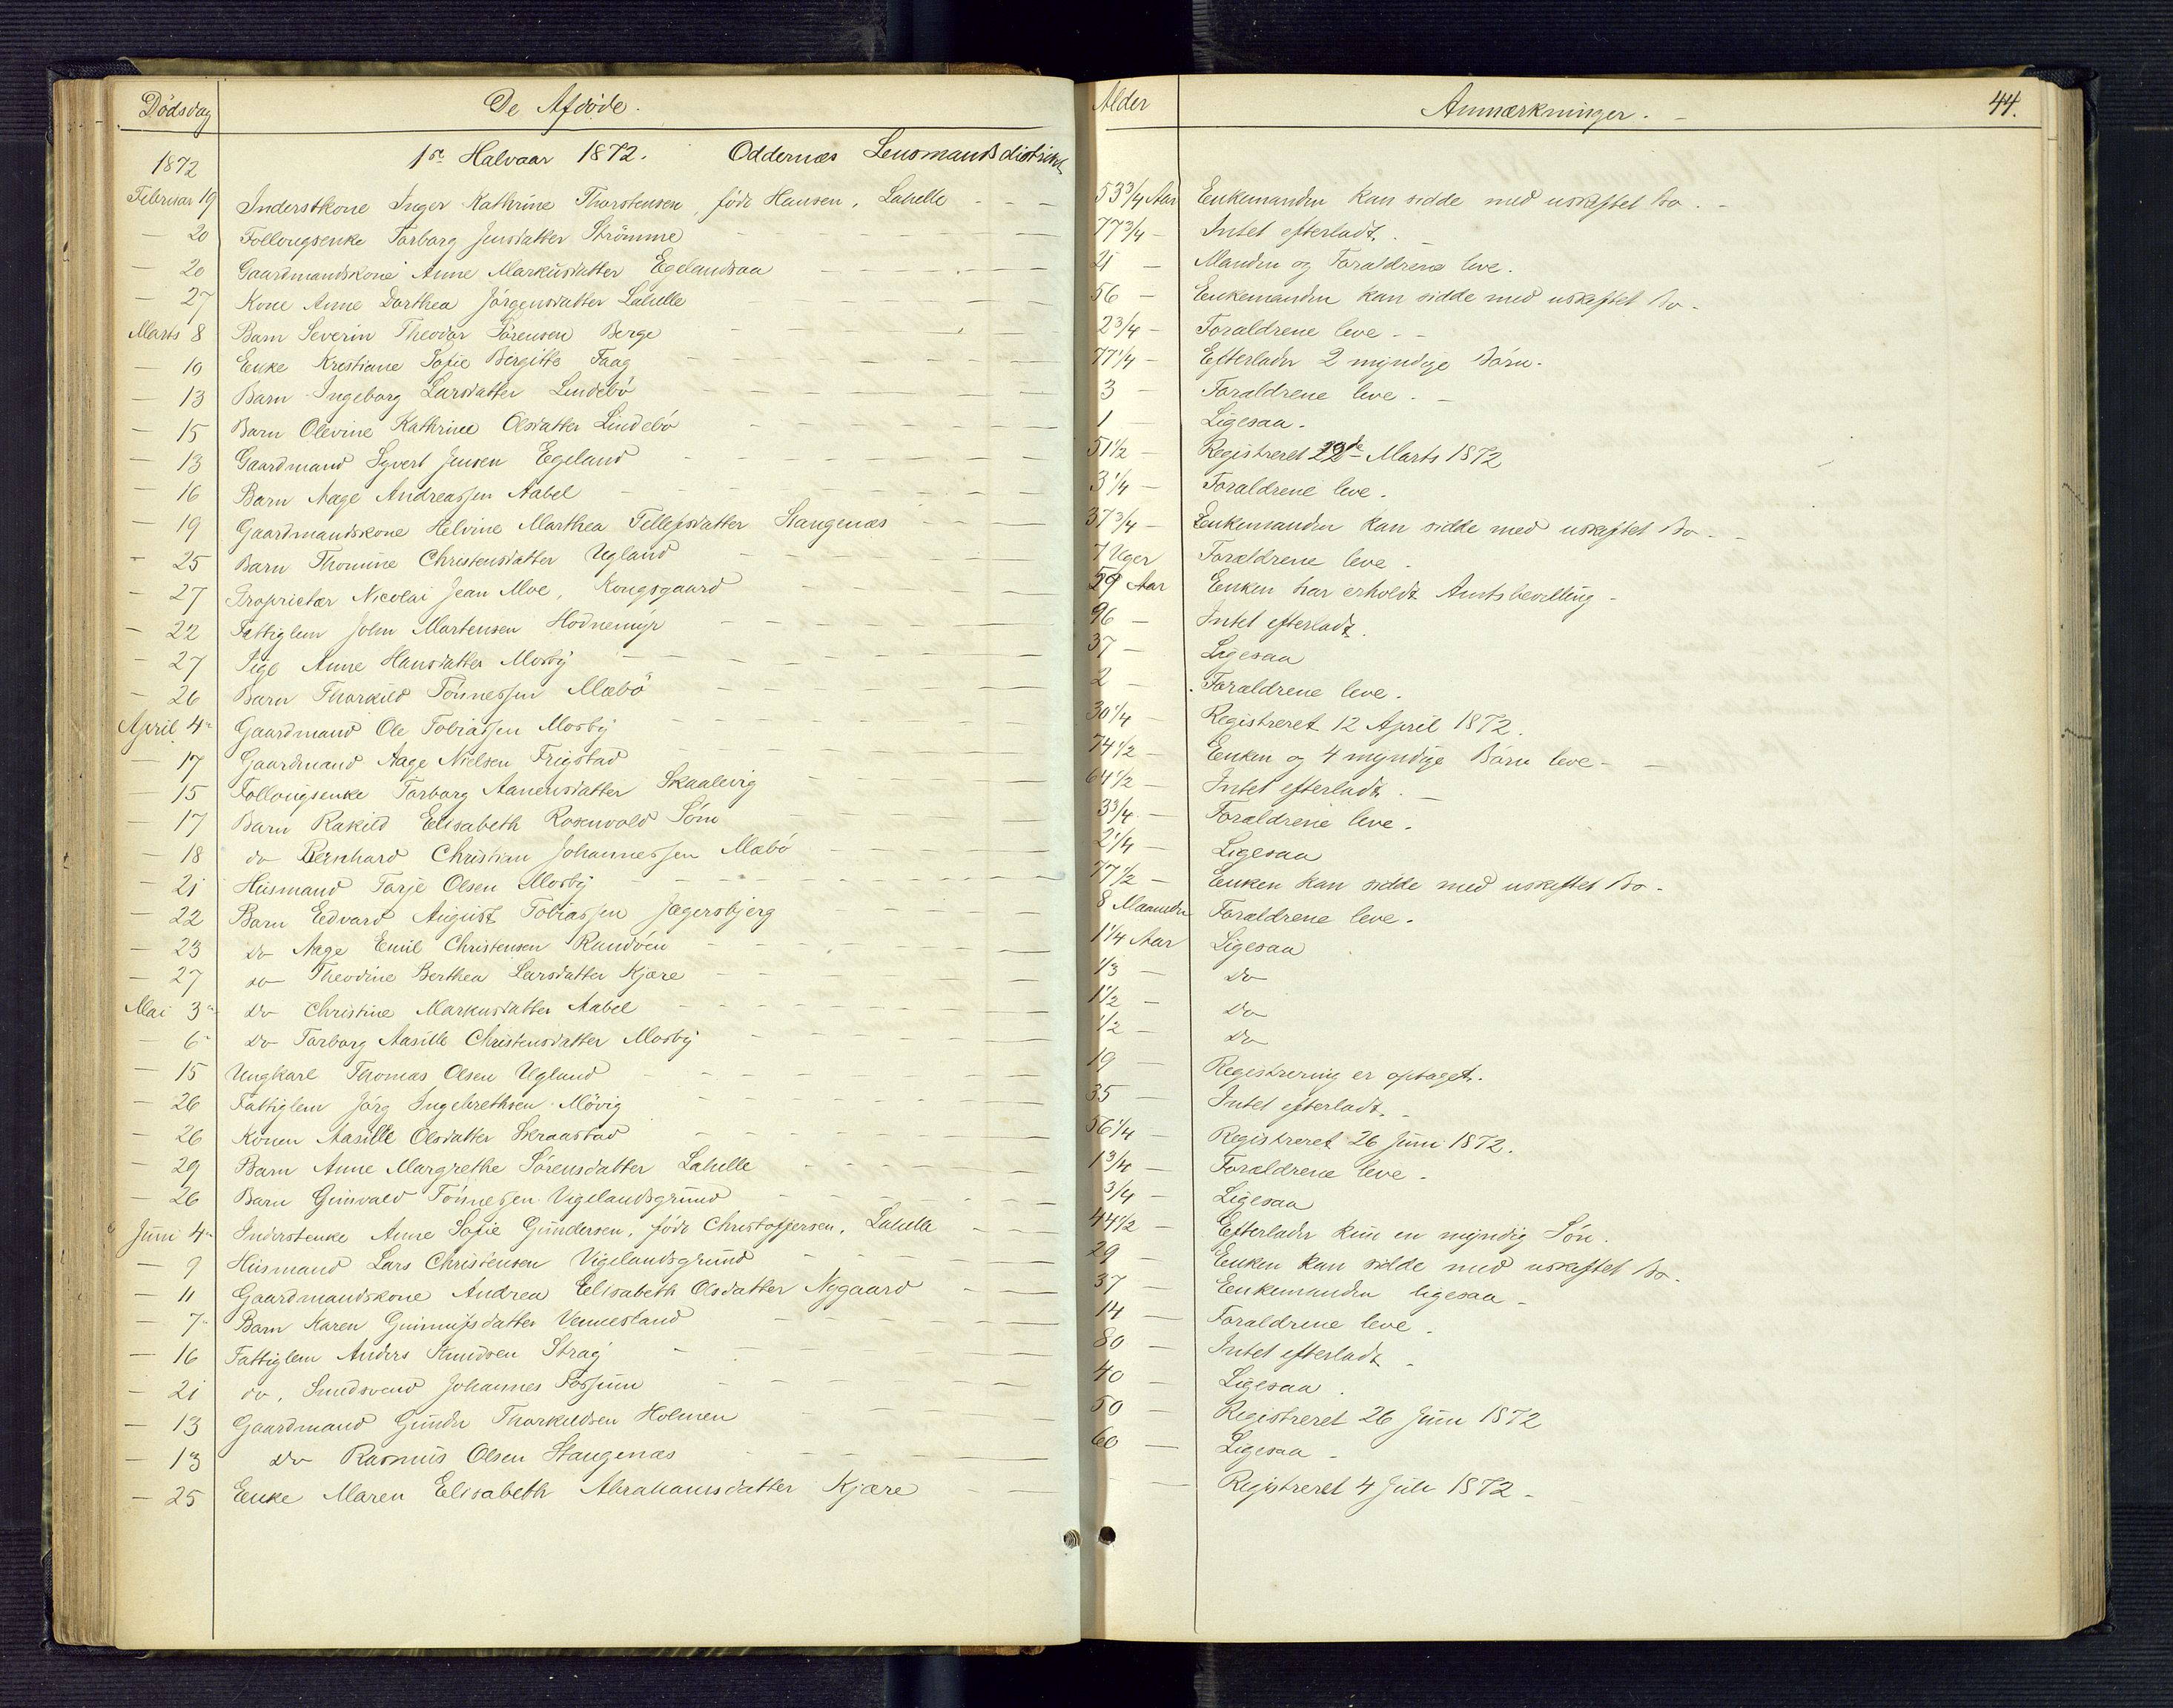 Dödsdag De Afdöde. Alder Anmærkninger. 44.
1872 1ste Halvaar 1872. Oddernæs Lensmandsdistrikt
Februar 19 Inderstkone Inger Kathrine Thorstensen, föde Hansen, Lahelle 53 3/4 Aar Enkemanden kan sidde med uskiftet Bo.
— 20 Follougsenke Torborg Jensdatter Strömme 77 3/4 — Intet efterladt.
— 20 Gaardmandskone Anne Markusdatter Egelandsaa 21 — Manden og Forældrene leve.
— 27 Kone Anne Dorthea Jörgensdatter Lahelle 56 — Enkemanden kan sidde med uskiftet Bo.
Marts 8 Barn Severin Theodor Sörensen Berge 2 3/4 — Forældrene leve.
— 10 Enke Kristiane Sofie Bergitte Faag 77 1/4 — Efterlader 2 myndige Börn.
— 13 Barn Ingeborg Larsdatter Lindebö 3 — Forældrene leve.
— 15 Barn Olevine Kathrine Olsdatter Lindebö 1 Ligesaa.
— 13 Gaardmand Syvert Jensen Egeland 51 1/2 — Registreret Marts 1872
— 16 Barn Aage Andreassen Aabel 3 1/4 — Forældrene leve.
— 19 Gaardmandskone Helvine Marthea Tellefsdatter Stangenæs 37 3/4 — Enkemanden kan sidde med uskiftet Bo.
— 25 Barn Thomine Christensdatter Ugland 7 Uger Forældrene leve.
— 27 Proprietær Nicolai Jean Moe, Kongsgaard 59 Aar Enken har erholdt Amtsbevilling.
— 22 Fattiglem John Martensen Hodnemyr 96 — Intet efterladt.
— 27 Pige Anne Hansdatter Mosby 37 — Ligesaa
— 26 Barn Thorkild Tönnessen Mæbö 2 — Forældrene leve.
April 4 Gaardmand Ole Tobiassen Mosby 30 1/4 — Registreret 12 April 1872.
— 17 Gaardmand Aage Nielsen Frigstad 74 1/2 — Enken og 4 myndige Börn leve.
— 15 Follougsenke Torborg Aanensdatter Skaalevig 64 1/2 — Intet efterladt.
— 17 Barn Rakild Elisabeth Rosenvold Söm 3 3/4 — Forældrene leve.
— 18 do Bernhard Christian Johannessen Mæbö 2 1/4 — Ligesaa
— 21 Husmand Tarje Olsen Mosby 77 1/2 — Enken kan sidde med uskiftet Bo.
— 22 Barn Edvard August Tobiassen Jegersbjerg 8 Maaneder Forældrene leve.
— 23 do Aage Emil Christensen Randöen 1 1/4 Aar Ligesaa
— 27 do Theodine Berthea Larsdatter Kjære 1/3 — do
Mai 3 do Christine Markusdatter Aabel 1 1/2 — do
— 6 do Torborg Aasille Christensdatter Mosby 1/2 — do
— 15 Ungkarl Thomas Olsen Ugland 19 — Registrering er optaget.
— 26 Fattiglem Jörg Ingebrethsen Mövig 35 — Intet efterladt.
— 26 Konen Aasille Olsdatter Skraastad 56 1/4 — Registreret 26 Juni 1872.
— 29 Barn Anne Margrethe Sörensdatter Lahelle 1 3/4 — Forældrene leve.
— 26 Barn Gunvald Tönnessen Vigelandsgrund 3/4 — Ligesaa
Juni 4 Inderstenke Anne Sofie Gundersen, föde Christoffersen, Lahelle 44 1/2 — Efterlader kun en myndig Sön.
— 9 Husmand Lars Christensen Vigelandsgrund 29 — Enken kan sidde med uskiftet Bo.
— 11 Gaardmandskone Andrea Elisabeth Olsdatter Nygaard 37 — Enkemanden ligesaa
— 7 Barn Karen Gunnufsdatter Vennesland 14 — Forældrene leve.
— 16 Fattiglem Anders Knudsen Strag 80 — Intet efterladt
— 21 do, Smedsvend Johannes Fossum 40 — Ligesaa.
— 13 Gaardmand Gunder Thorkildsen Holmen 50 — Registreret 26 Juni 1872
— 13 do Rasmus Olsen Stangenæs 60 — Ligesaa
— 25 Enke Maren Elisabeth Abrahamsdatter Kjære — Registreret 4 Juli 1872.